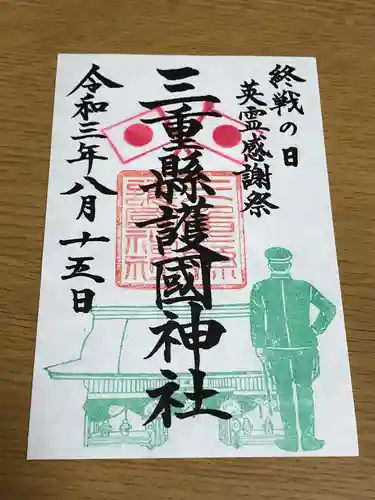 終戦の日
英霊感謝祭
三重縣護國神社
令和三年八月十五日